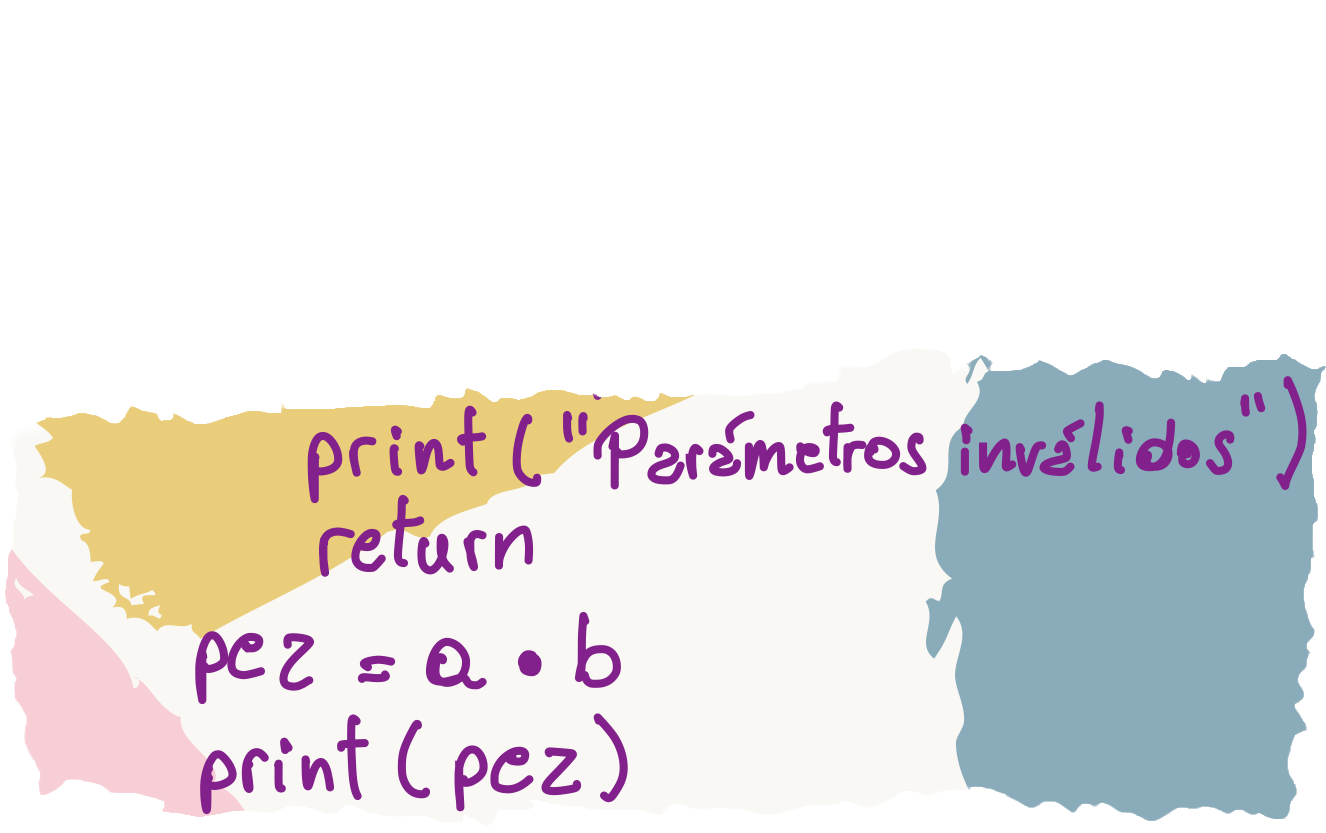 print("Parámetros inválidos")
return
pez = a • b
print(pez)